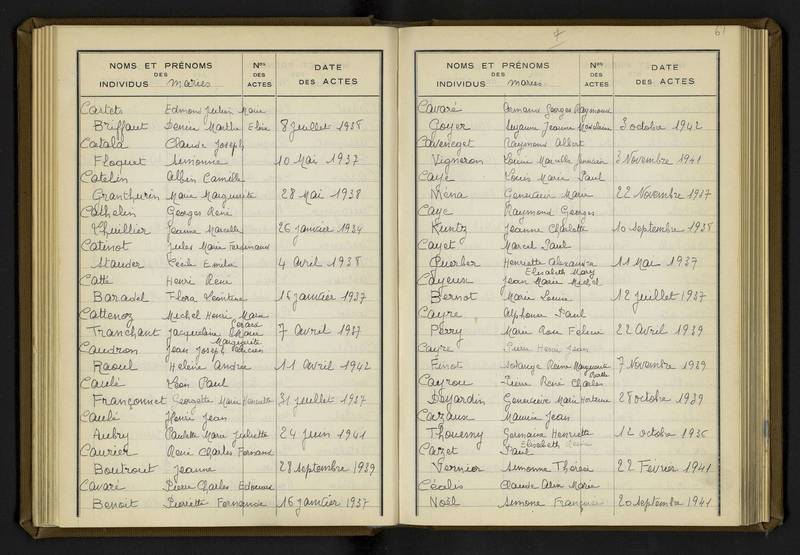 NOMS ET PRÉNOMS DES INDIVIDUS Maries
Nos DES ACTES
DATE DES ACTES
Castets Edmond Julien Marie
Briffaut Denise Marthe Eloïse 8 Juillet 1938
Catala Claude Joseph
Floquet Simonne 10 Mai 1937
Catelin Albin Camille
Granthurin Marie Marguerite 28 Mai 1938
Cathelin Georges René
Thuillier Jeanne Marcelle 26 janvier 1934
Catinot Jules Marie Ferdinand
Stauder Cécile Emilie 4 Avril 1938
Catté Henri René
Baradel Flora Léontine 16 janvier 1937
Cattenoz Michel Henri Marie
Gérard
Tranchant Jacqueline Marie 7 Avril 1937
Marguerite
Caudron Jean Joseph
Raoul Helène Andrée 11 Avril 1942
Caulé Léon Paul
Françonnet Georgette Marie Henriette 31 juillet 1937
Caulé Henri Jean
Aubry Paulette Marie Juliette 24 juin 1941
Caurier René Charles Fernand
Boutroit Jeanne 28 septembre 1939
Cavaré Pierre Charles Edouard
Benoit Pierrette Fernande 16 janvier 1937
7
61
NOMS ET PRÉNOMS DES INDIVIDUS maries
Nos DES ACTES
DATE DES ACTES
Cavaré Armand Georges Raymond
Goyer Suzanne Jeanne Madeleine 3 octobre 1942
Caveneget Raymond Albert
Vigneron Louise Marcelle Germain 3 Novembre 1941
Caye Louis Marie Paul
Ména Geneviève Marie 22 Novembre 1937
Caye Raymond Georges
Kuntz Jeanne Charlotte 10 septembre 1938
Cayet Marcel Paul
Querber Henriette Alexandra 11 Mai 1937
Elisabeth Mary
Cayeux Jean Marie Michel
Bernot Marie Louise 12 juillet 1937
Cayre Alphonse Paul
Perry Marie Rose Félicie 22 Avril 1939
Cayre Pierre Henri Jean
Finot Solange Reine Marguerite 7 Novembre 1939
Cayrou Pierre René Charles
Dejardin Geneviève Marie Hortense 28 octobre 1939
Cazaux Maurice Jean
Thouesny Germaine Henriette 12 octobre 1936
Elisabeth
Cazet Paul
Vernier Simonne Thérèse 22 Février 1941
Cécilis Claude Alex Marie
Noël Simone Françoise 20 septembre 1941